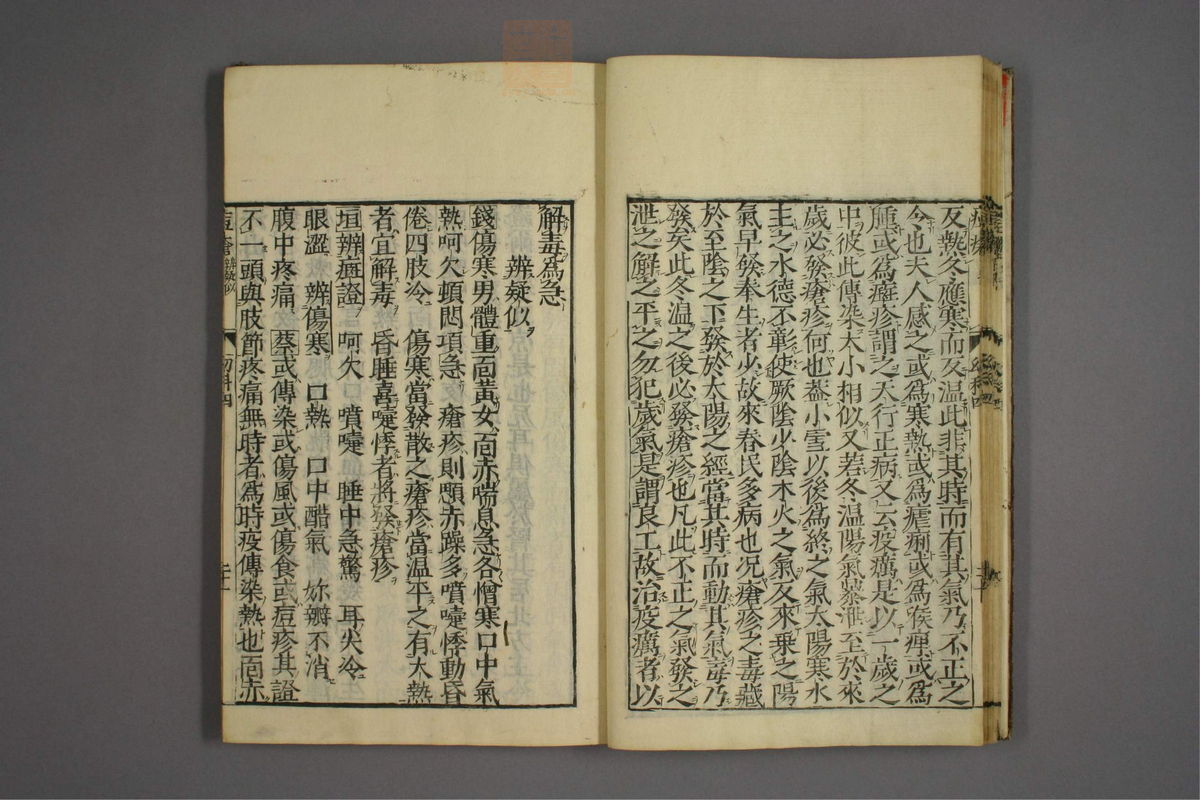 反熱冬應寒而反温此非其時而有其氣乃不正之
令也夫人感之或爲寒熱或爲瘧痢或爲喉痺或爲
腫或爲癍疹謂之天行正病又云疫癘是以一歲之
中彼此傳染大小相似又若冬温陽氣暴泄至於來
歲必發瘡疹何也蓋小雪以後爲終之氣太陽寒水
主之水德不彰使厥陰少陰木火之氣反來乗之陽
氣早發奉生者少故來春民多病也况瘡疹之毒藏
於至陰之下發於太陽之經當其時而動其氣毒乃
發矣此冬温之後必發瘡疹也凡此不正之氣發之
泄之解之平之勿犯歲氣是謂良工故治疫癘者以
解毒爲急
辨疑似
錢傷寒男體重面黄女面赤喘息急各憎寒口中氣
熱呵欠頓悶項急 瘡疹則顋赤躁多噴嚏悸動昏
倦四肢冷 傷寒當發散之瘡疹當温平之有大熱
者宜解毒 昏睡喜嚏悸者將發瘡疹
垣辨癍證 呵欠 噴嚏 睡中急驚 耳尖冷
眼澀 辨傷寒 口熱 口中醋氣 妳瓣不消
腹中疼痛 蔡或傳染或傷風或傷食或痘疹其證
不一頭與肢節疼痛無時者爲時疫傳染熱也面赤
痘瘡 辨疑似 幼科四